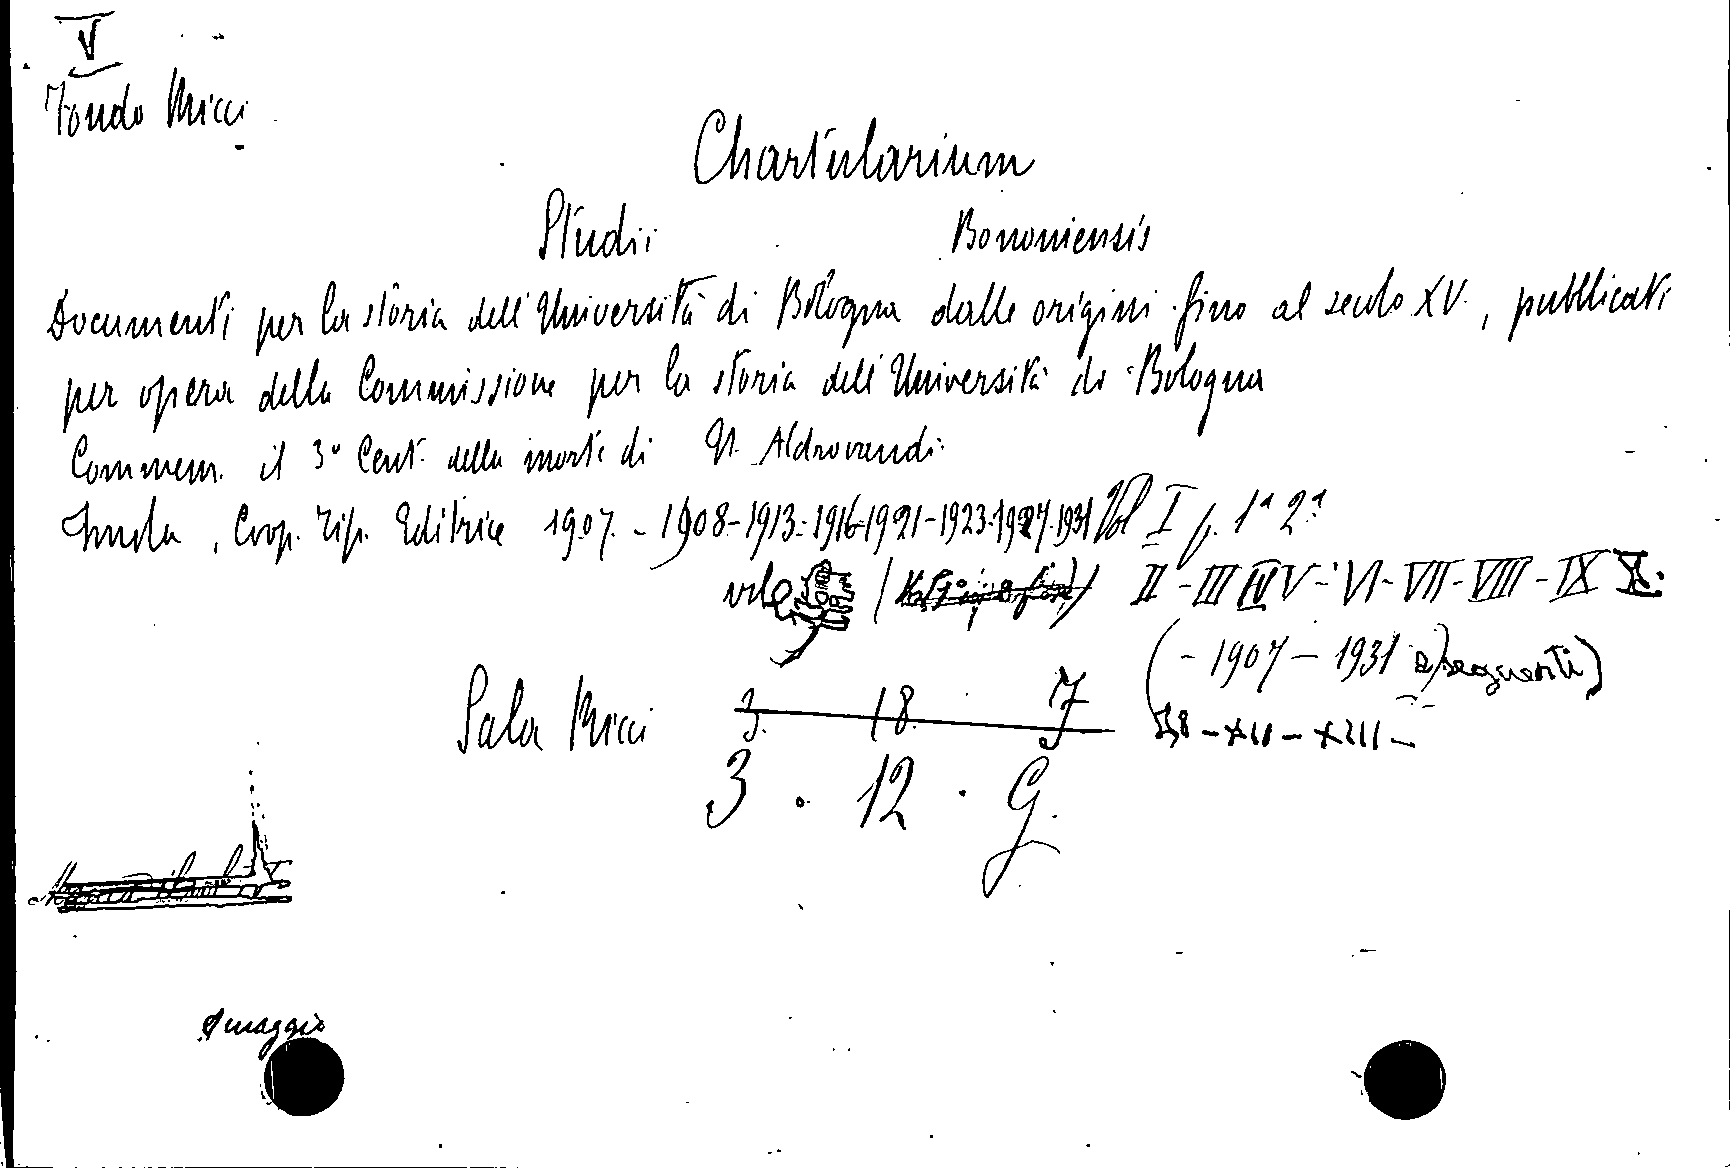 V
Fondo Ricci
Chartularium
Studii Bononiensis
Documenti per la storia dell'Università di Bologna dalle origini fino al secolo XV, pubblicati
per opera della Commissione per la storia dell'Università di Bologna
Commem. il 3° Cent. della morte di U. Aldrovandi.
Imola, Coop. Tip. Editrice 1907. - 1908-1913-1916-1921-1923-1927-1931 Vol I p. 1ª 2ª
vol. II - III IV V - VI - VII - VIII - IX X.
(- 1907 - 1931 e seguenti)
Sala Ricci 3. 18. 7 - XII - XIII -
3 . 12 . G.
Omaggio